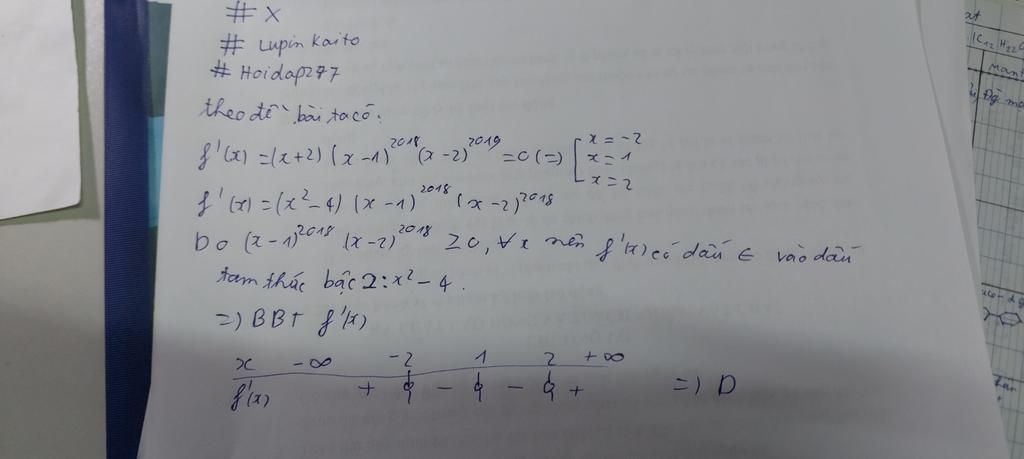 # X
# Lupin Kaito
# Hoidap277
theo đề bài ta có:
f'(x) = (x+2) (x-1)^2018 (x-2)^2019 = 0 (=) [ x = -2
x = 1
x = 2
f'(x) = (x²-4) (x-1)^2018 (x-2)^2018
Do (x-1)^2018 (x-2)^2018 ≥ 0, ∀x nên f'(x) có dấu ∈ vào dấu
tam thức bậc 2: x²-4.
=) BBT f'(x)
x -∞ -2 1 2 +∞
f'(x) + 0 - 0 - 0 + =) D
at
C12H22O